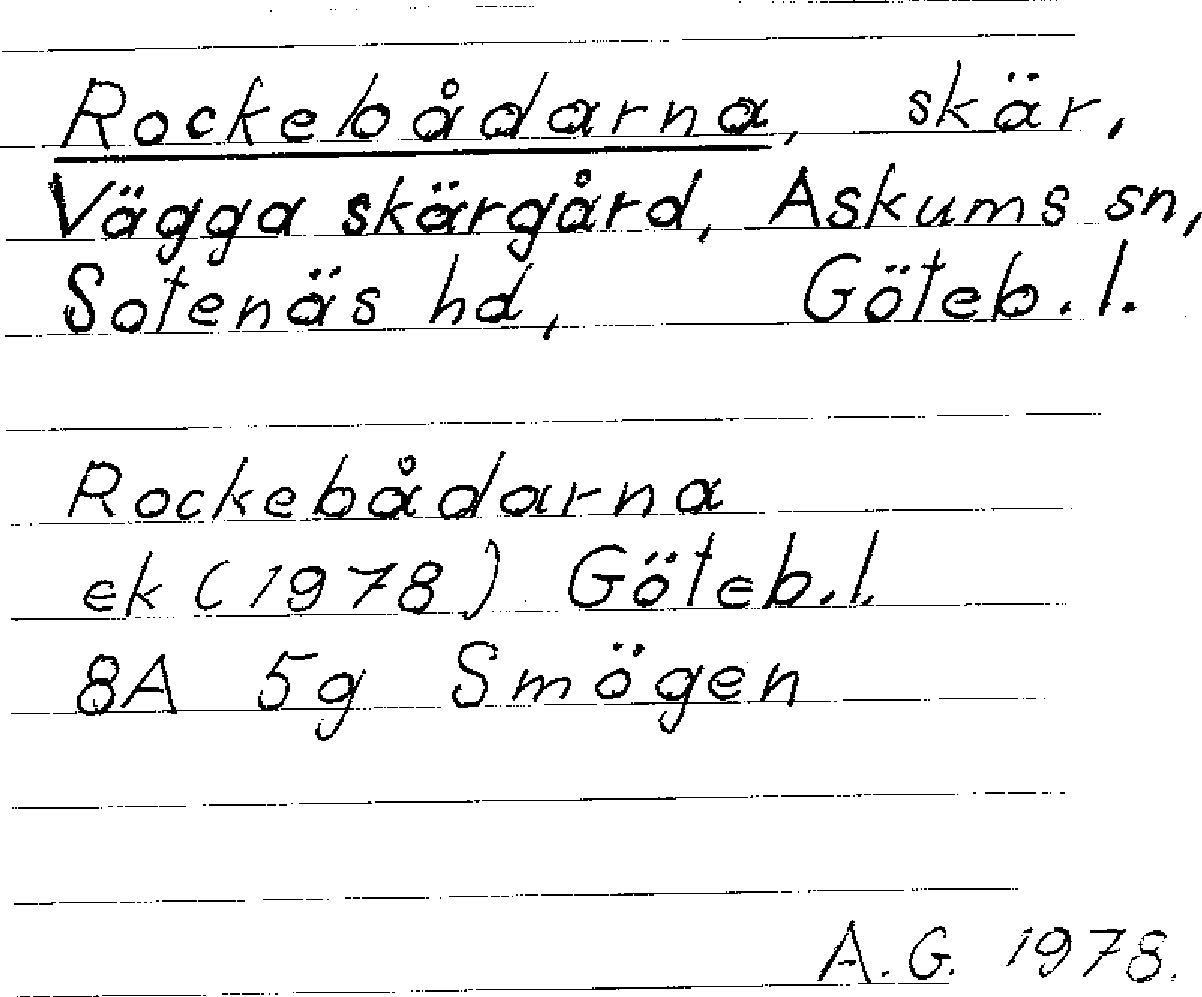 Rockebådarna, skär,
Vägga skärgård, Askums sn,
Sotenäs hd, Göteb. l.
Rockebådarna
ek (1978) Göteb. l.
8A 5g Smögen
A. G. 1978.